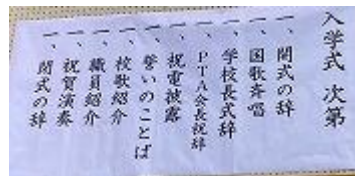 入学式 次第
一、開式の辞
一、国歌斉唱
一、学校長式辞
一、PTA会長祝辞
一、祝電披露
一、誓いのことば
一、校歌紹介
一、職員紹介
一、祝賀演奏
一、閉式の辞